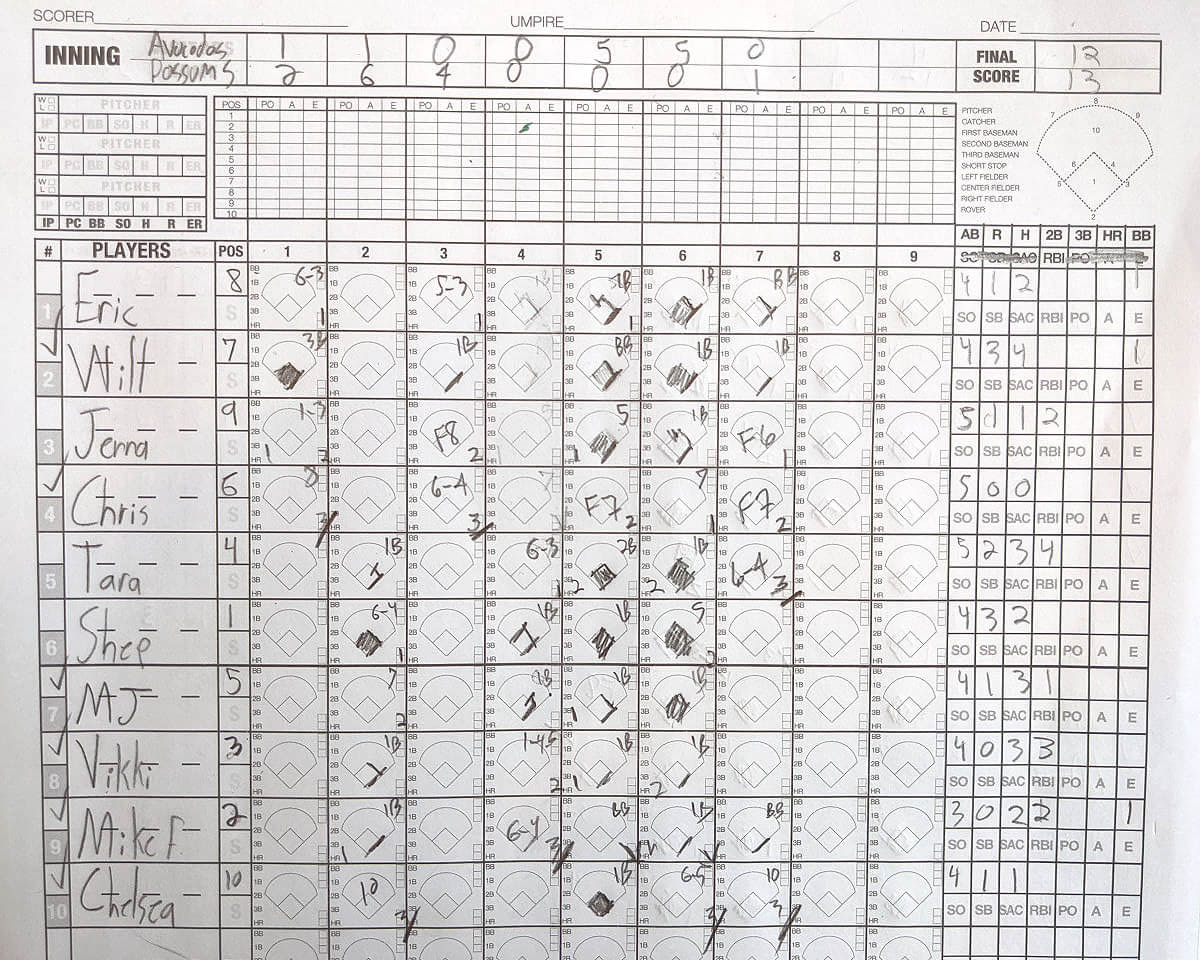 SCORER
UMPIRE
DATE
INNING
Avocados 1 1 0 0 5 5 0
Possums 2 6 4 0 0 0 1
FINAL SCORE
12
13
W L PITCHER
IP PC BB SO H R ER
W L PITCHER
IP PC BB SO H R ER
W L PITCHER
IP PC BB SO H R ER
IP PC BB SO H R ER
POS PO A E PO A E PO A E PO A E PO A E PO A E PO A E PO A E PO A E
1
2
3
4
5
6
7
8
9
10
PITCHER
CATCHER
FIRST BASEMAN
SECOND BASEMAN
THIRD BASEMAN
SHORT STOP
LEFT FIELDER
CENTER FIELDER
RIGHT FIELDER
ROVER
8
7 9
10
6 4
5 1 3
2
AB R H 2B 3B HR BB
# PLAYERS POS 1 2 3 4 5 6 7 8 9
RBI
1 Eric 8 6-3 5-3 1B BB 4 1 2 1
SO SB SAC RBI PO A E
2 Wilt 7 3B 1B BB 1B 1B 4 3 4 1
SO SB SAC RBI PO A E
3 Jenna 9 1-3 F8 5 1B F6 5 1 1 2
SO SB SAC RBI PO A E
4 Chris 6 8 6-4 F7 7 F7 5 0 0
SO SB SAC RBI PO A E
5 Tara 4 1B 6-3 2B 1B 6-4 5 2 3 4
SO SB SAC RBI PO A E
6 Shep 1 6-4 1B 1B 5 4 3 2
SO SB SAC RBI PO A E
7 MJ 5 7 1B 1B 1B 4 1 3 1
SO SB SAC RBI PO A E
8 Vikki 3 1B 1B 1B 4 0 3 3
SO SB SAC RBI PO A E
9 Mike F. 2 1B 6-4 BB 1B BB 3 0 2 2 1
SO SB SAC RBI PO A E
10 Chelsea 10 10 1B 6-5 10 4 1 1
SO SB SAC RBI PO A E